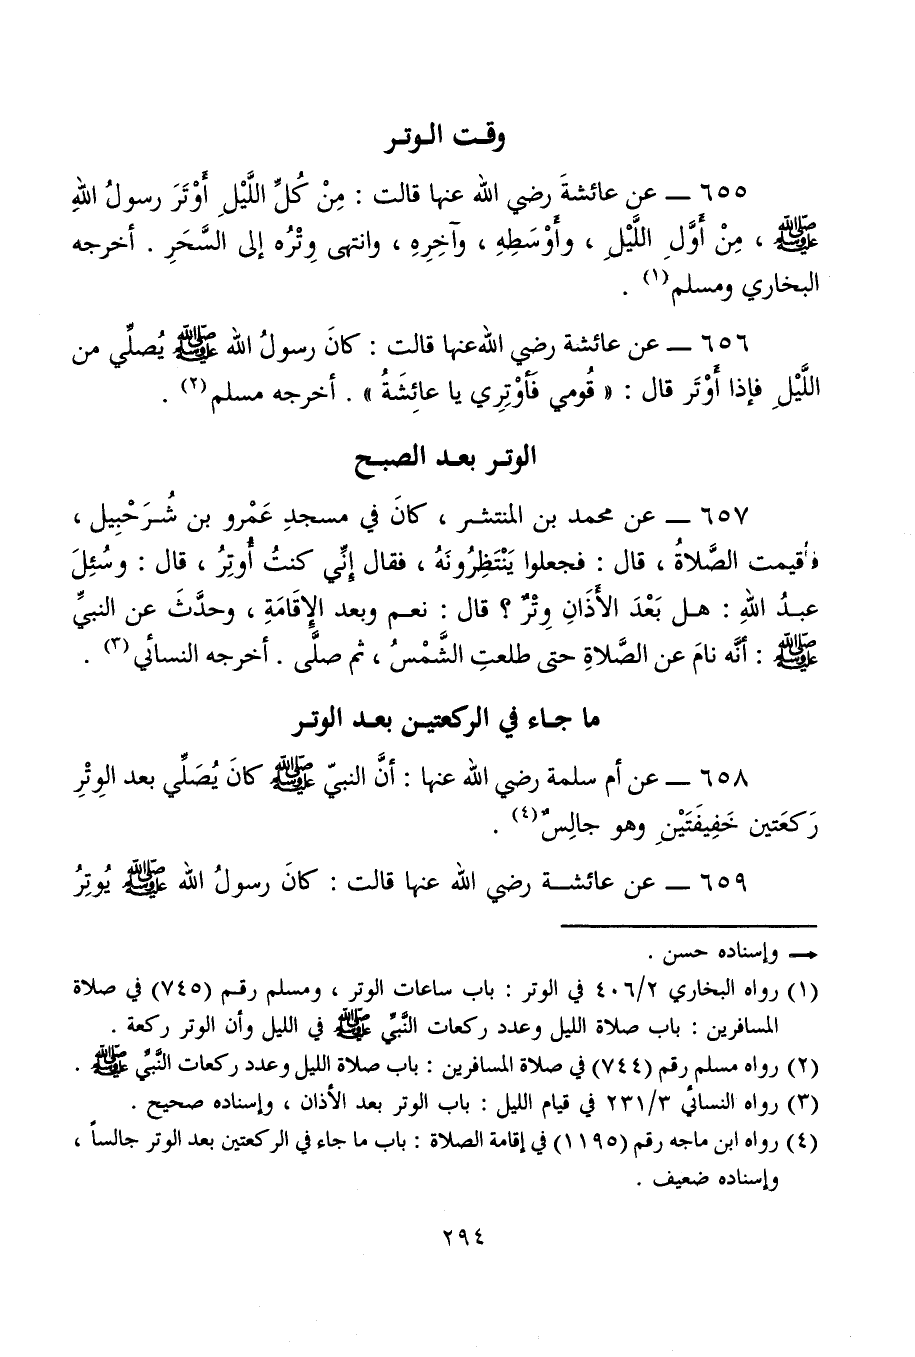 وقت الوتر
٦٥٥ ــ عن عائشةَ رضي الله عنها قالت : مِنْ كُلِّ اللَّيْلِ أَوْتَرَ رسولُ اللهِ
ﷺ ، مِنْ أَوَّلِ اللَّيْلِ ، وأَوْسَطِهِ ، وآخِرِهِ ، وانتهى وِتْرُه إلى السَّحَرِ . أخرجه
البخاري ومسلم(١) .
٦٥٦ ــ عن عائشة رضي الله عنها قالت : كانَ رسولُ الله ﷺ يُصلِّي من
اللَّيْلِ فإذا أَوْتَر قال : « قُومي فَأَوْتِرِي يا عائِشَةُ » . أخرجه مسلم(٢) .
الوتر بعد الصبح
٦٥٧ ــ عن محمد بن المنتشر ، كانَ في مسجدِ عَمْرو بن شُرَحْبِيل ،
فأُقيمت الصَّلاةُ ، قال : فجعلوا يَنْتَظِرُونَهُ ، فقال إنِّي كنتُ أُوتِرُ ، قال : وسُئِلَ
عبدُ اللهِ : هل بَعْدَ الأَذَانِ وِتْرٌ ؟ قال : نعم وبعد الإِقَامَةِ ، وحدَّثَ عن النبيِّ
ﷺ : أنَّه نامَ عن الصَّلاةِ حتى طلعتِ الشَّمْسُ ، ثم صلَّى . أخرجه النسائي(٣) .
ما جاء في الركعتين بعد الوتر
٦٥٨ ــ عن أم سلمة رضي الله عنها : أنَّ النبيّ ﷺ كانَ يُصَلِّي بعد الوِتْرِ
رَكعَتين خَفِيفَتَيْنِ وهو جالِسٌ(٤) .
٦٥٩ ــ عن عائشة رضي الله عنها قالت : كانَ رسولُ الله ﷺ يُوتِرُ
← وإسناده حسن .
(١) رواه البخاري ٤٠٦/٢ في الوتر : باب ساعات الوتر ، ومسلم رقم (٧٤٥) في صلاة
المسافرين : باب صلاة الليل وعدد ركعات النَّبيِّ ﷺ في الليل وأن الوتر ركعة .
(٢) رواه مسلم رقم (٧٤٤) في صلاة المسافرين : باب صلاة الليل وعدد ركعات النَّبيِّ ﷺ .
(٣) رواه النسائي ٢٣١/٣ في قيام الليل : باب الوتر بعد الأذان ، وإسناده صحيح .
(٤) رواه ابن ماجه رقم (١١٩٥) في إقامة الصلاة : باب ما جاء في الركعتين بعد الوتر جالساً ،
وإسناده ضعيف .
٢٩٤